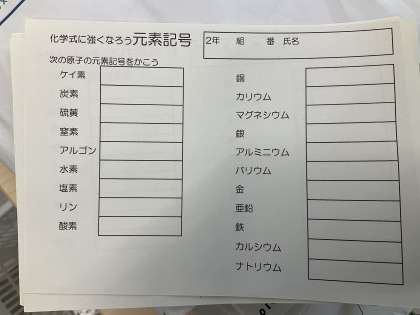 化学式に強くなろう元素記号
2年 組 番 氏名
次の原子の元素記号をかこう
ケイ素
炭素
硫黄
窒素
アルゴン
水素
塩素
リン
酸素
銅
カリウム
マグネシウム
銀
アルミニウム
バリウム
金
亜鉛
鉄
カルシウム
ナトリウム